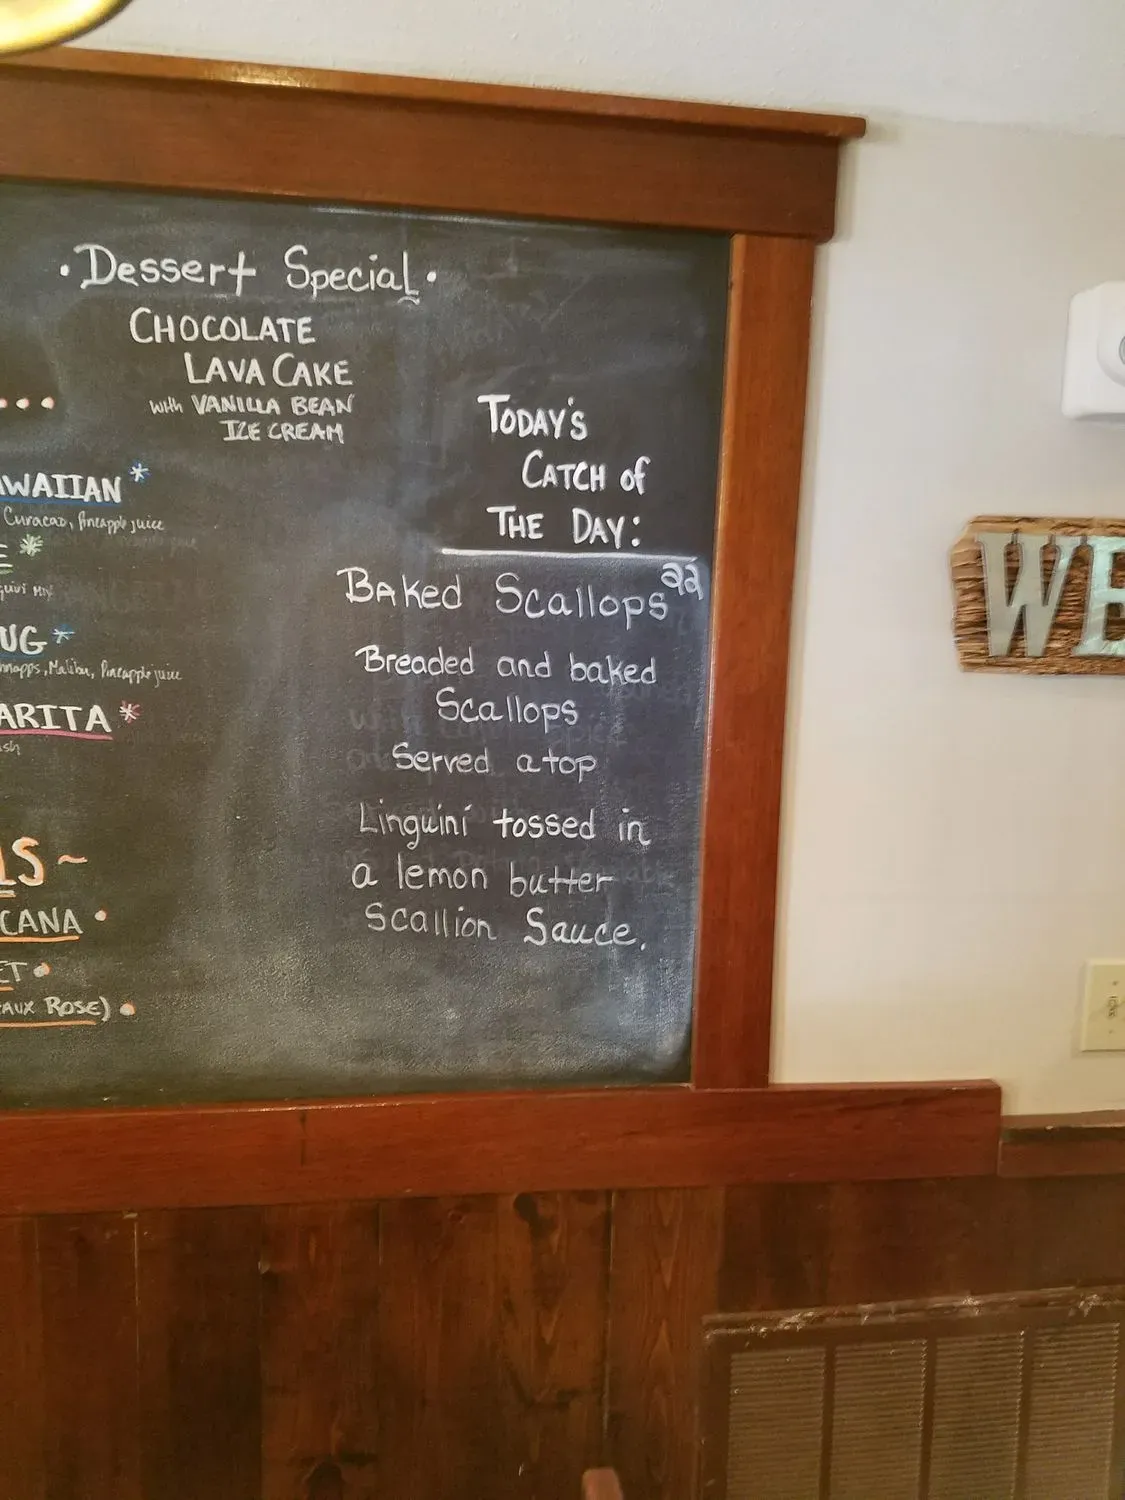 ·Dessert Special·
CHOCOLATE
LAVA CAKE
with VANILLA BEAN
ICE CREAM
AWAIIAN *
Curacao, Pineapple juice
E *
UG *
hnapps, Malibu, Pineapple juice
ARITA *
sh
LS ~
CANA •
ET •
EAUX ROSE) •
TODAY'S
CATCH of
THE DAY:
Baked Scallops 22
Breaded and baked
Scallops
Served atop
Linguini tossed in
a lemon butter
Scallion Sauce.
WE